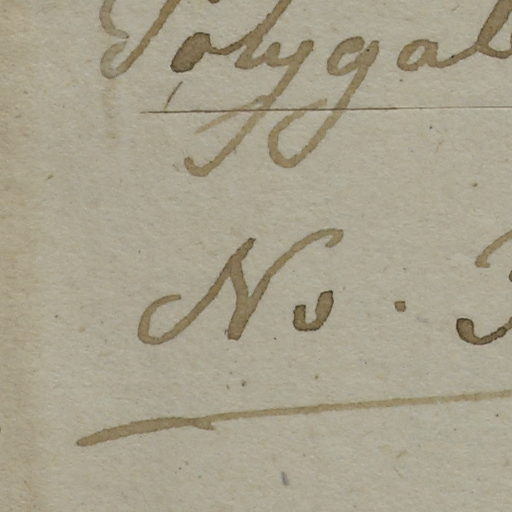 Polygal
No. 3